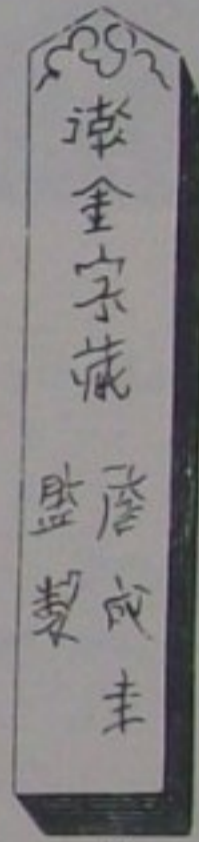 漱金家藏
詹成圭
監製